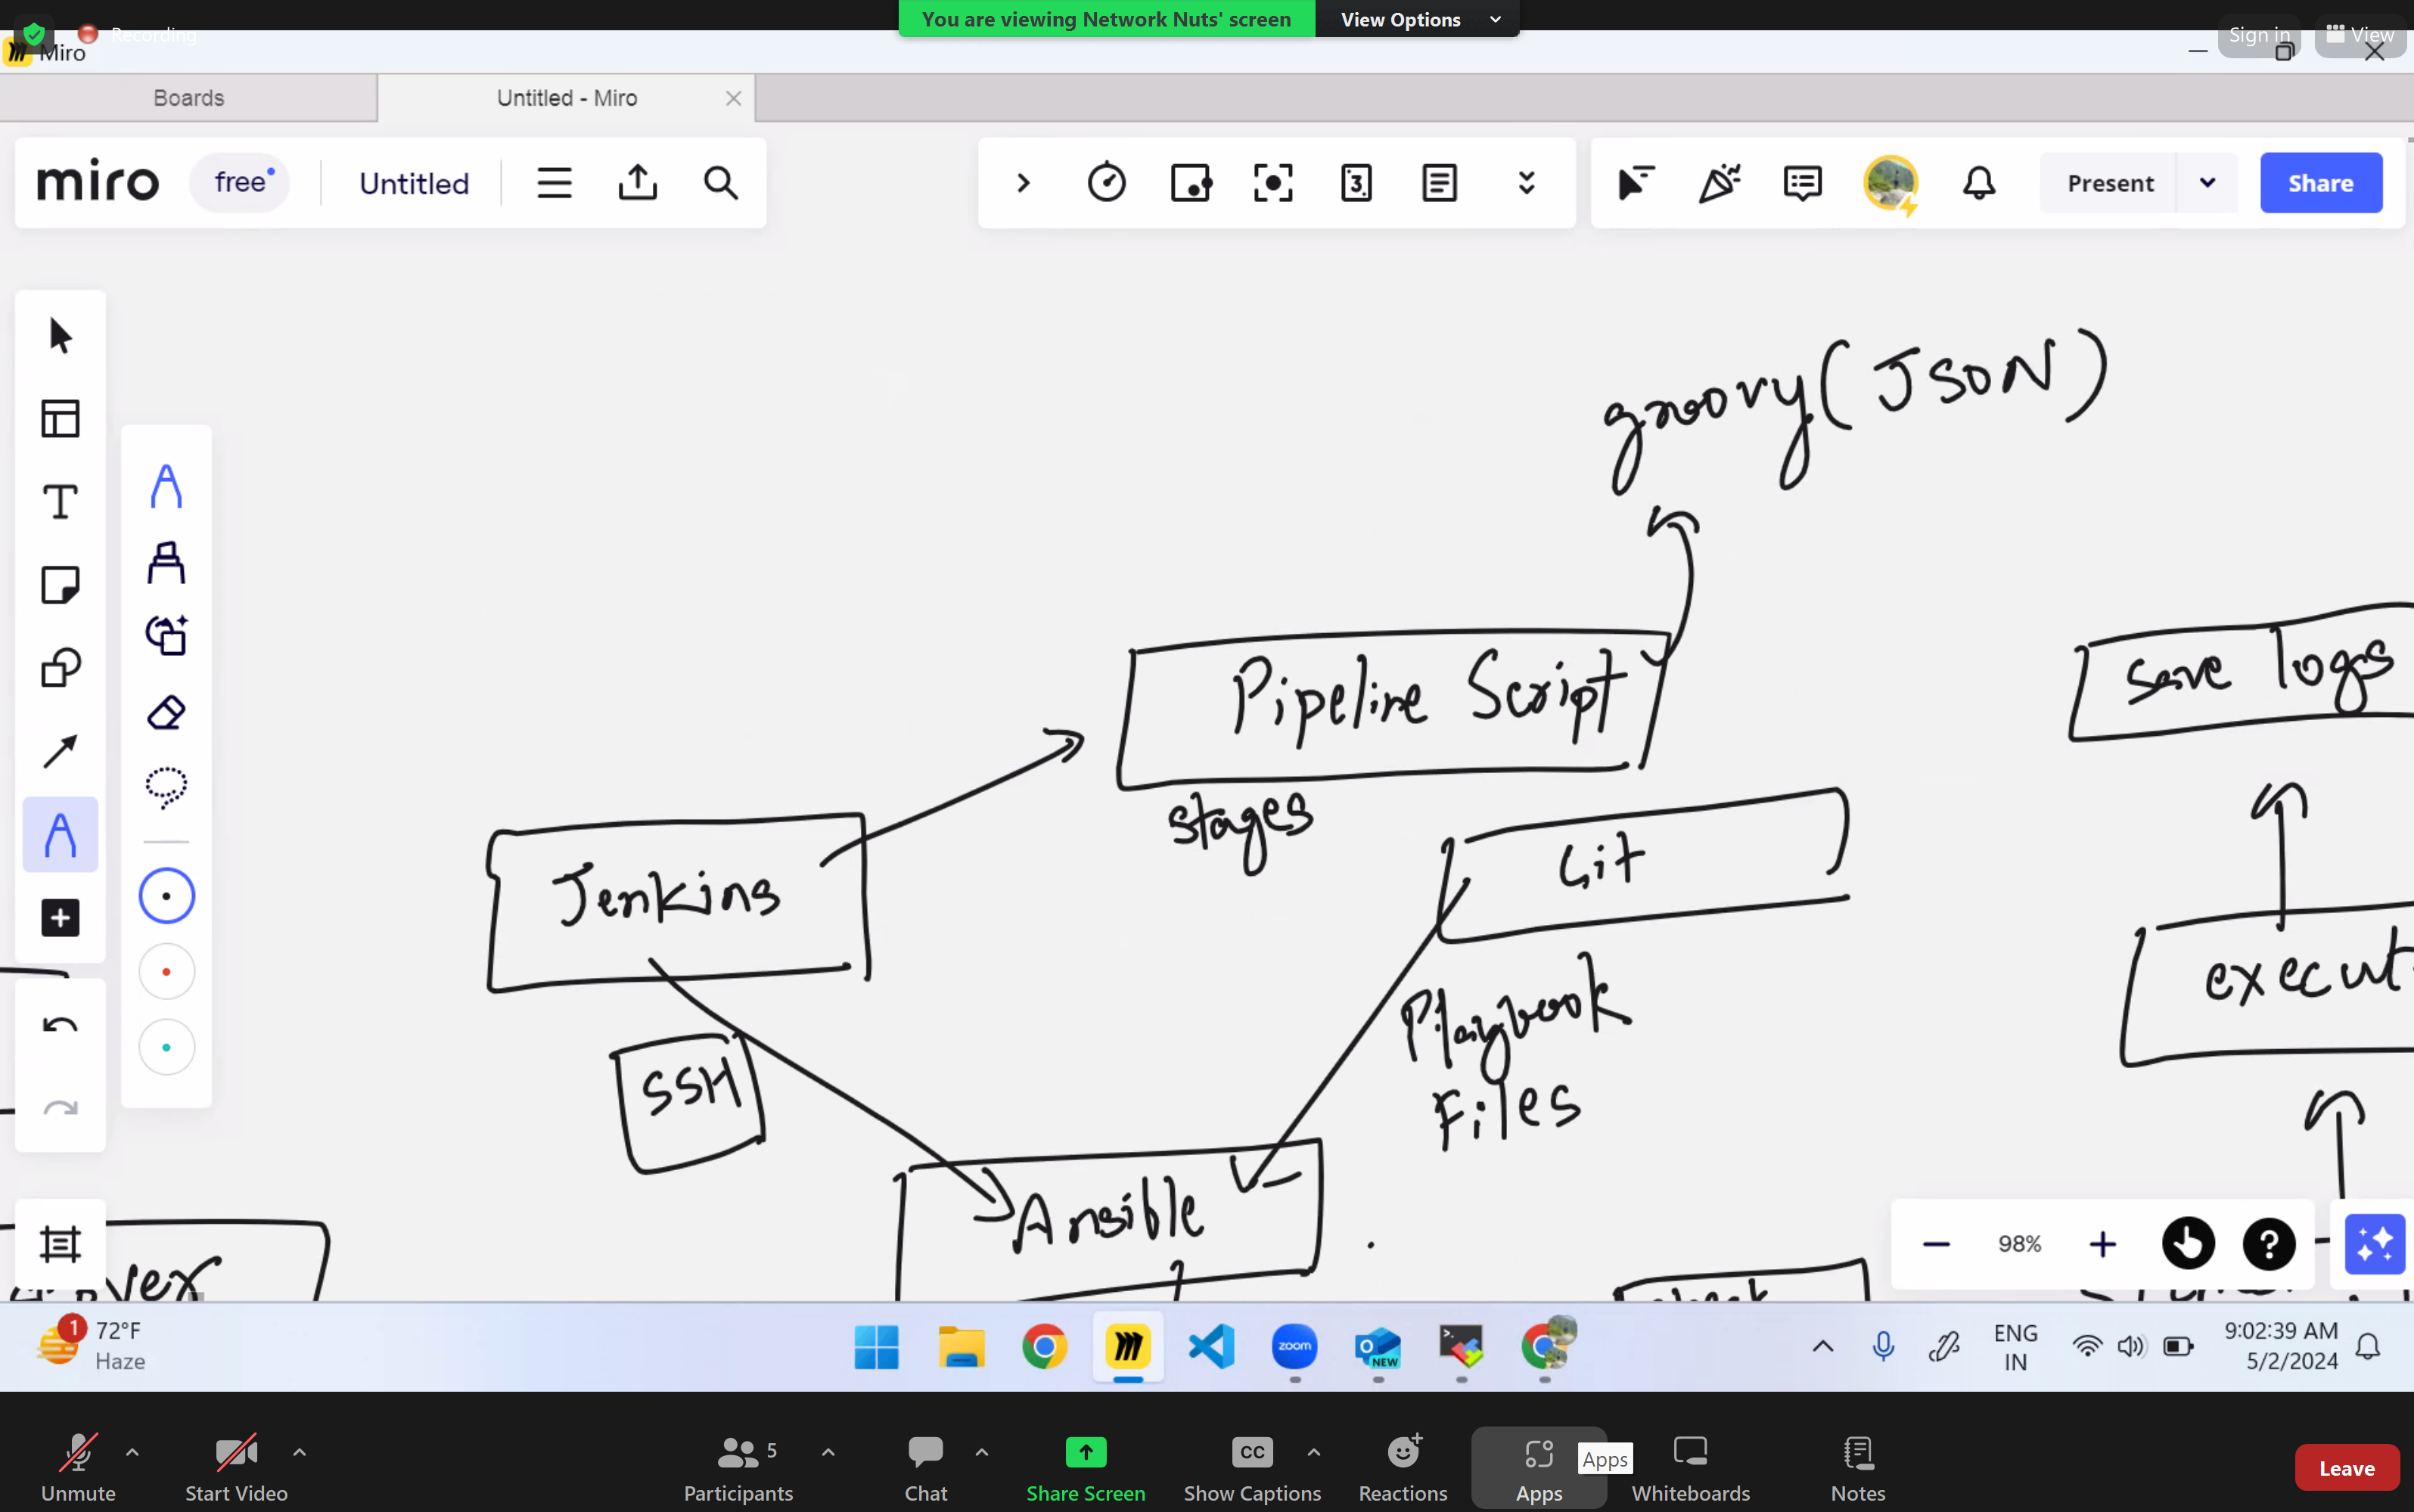 You are viewing Network Nuts' screen
View Options
Recording
Sign in
View
Miro
Boards
Untitled - Miro
miro
free
Untitled
3
Present
Share
groovy(JSON)
Pipeline Script
save logs
stages
Git
Jenkins
execut
Playbook
Files
SSH
Ansible
98%
?
ver
1
72°F
Haze
zoom
NEW
ENG
IN
9:02:39 AM
5/2/2024
Unmute
Start Video
5
Participants
Chat
Share Screen
CC
Show Captions
Reactions
Apps
Apps
Whiteboards
Notes
Leave